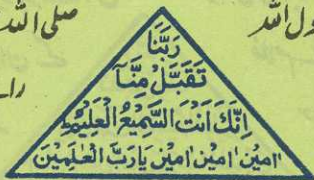 صلی اللہ
ول اللہ
رَبَّنَا
تَقَبَّلْ مِنَّا
اِنَّكَ اَنْتَ السَّمِيْعُ الْعَلِيْمُ
اٰمِيْن اٰمِيْن اٰمِيْن يَارَبَّ الْعٰلَمِيْنَ